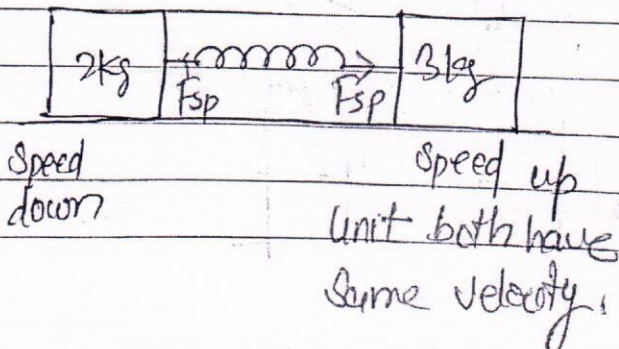 2kg Fsp Fsp 3kg
speed speed up
down
Unit both have
Same velocity.